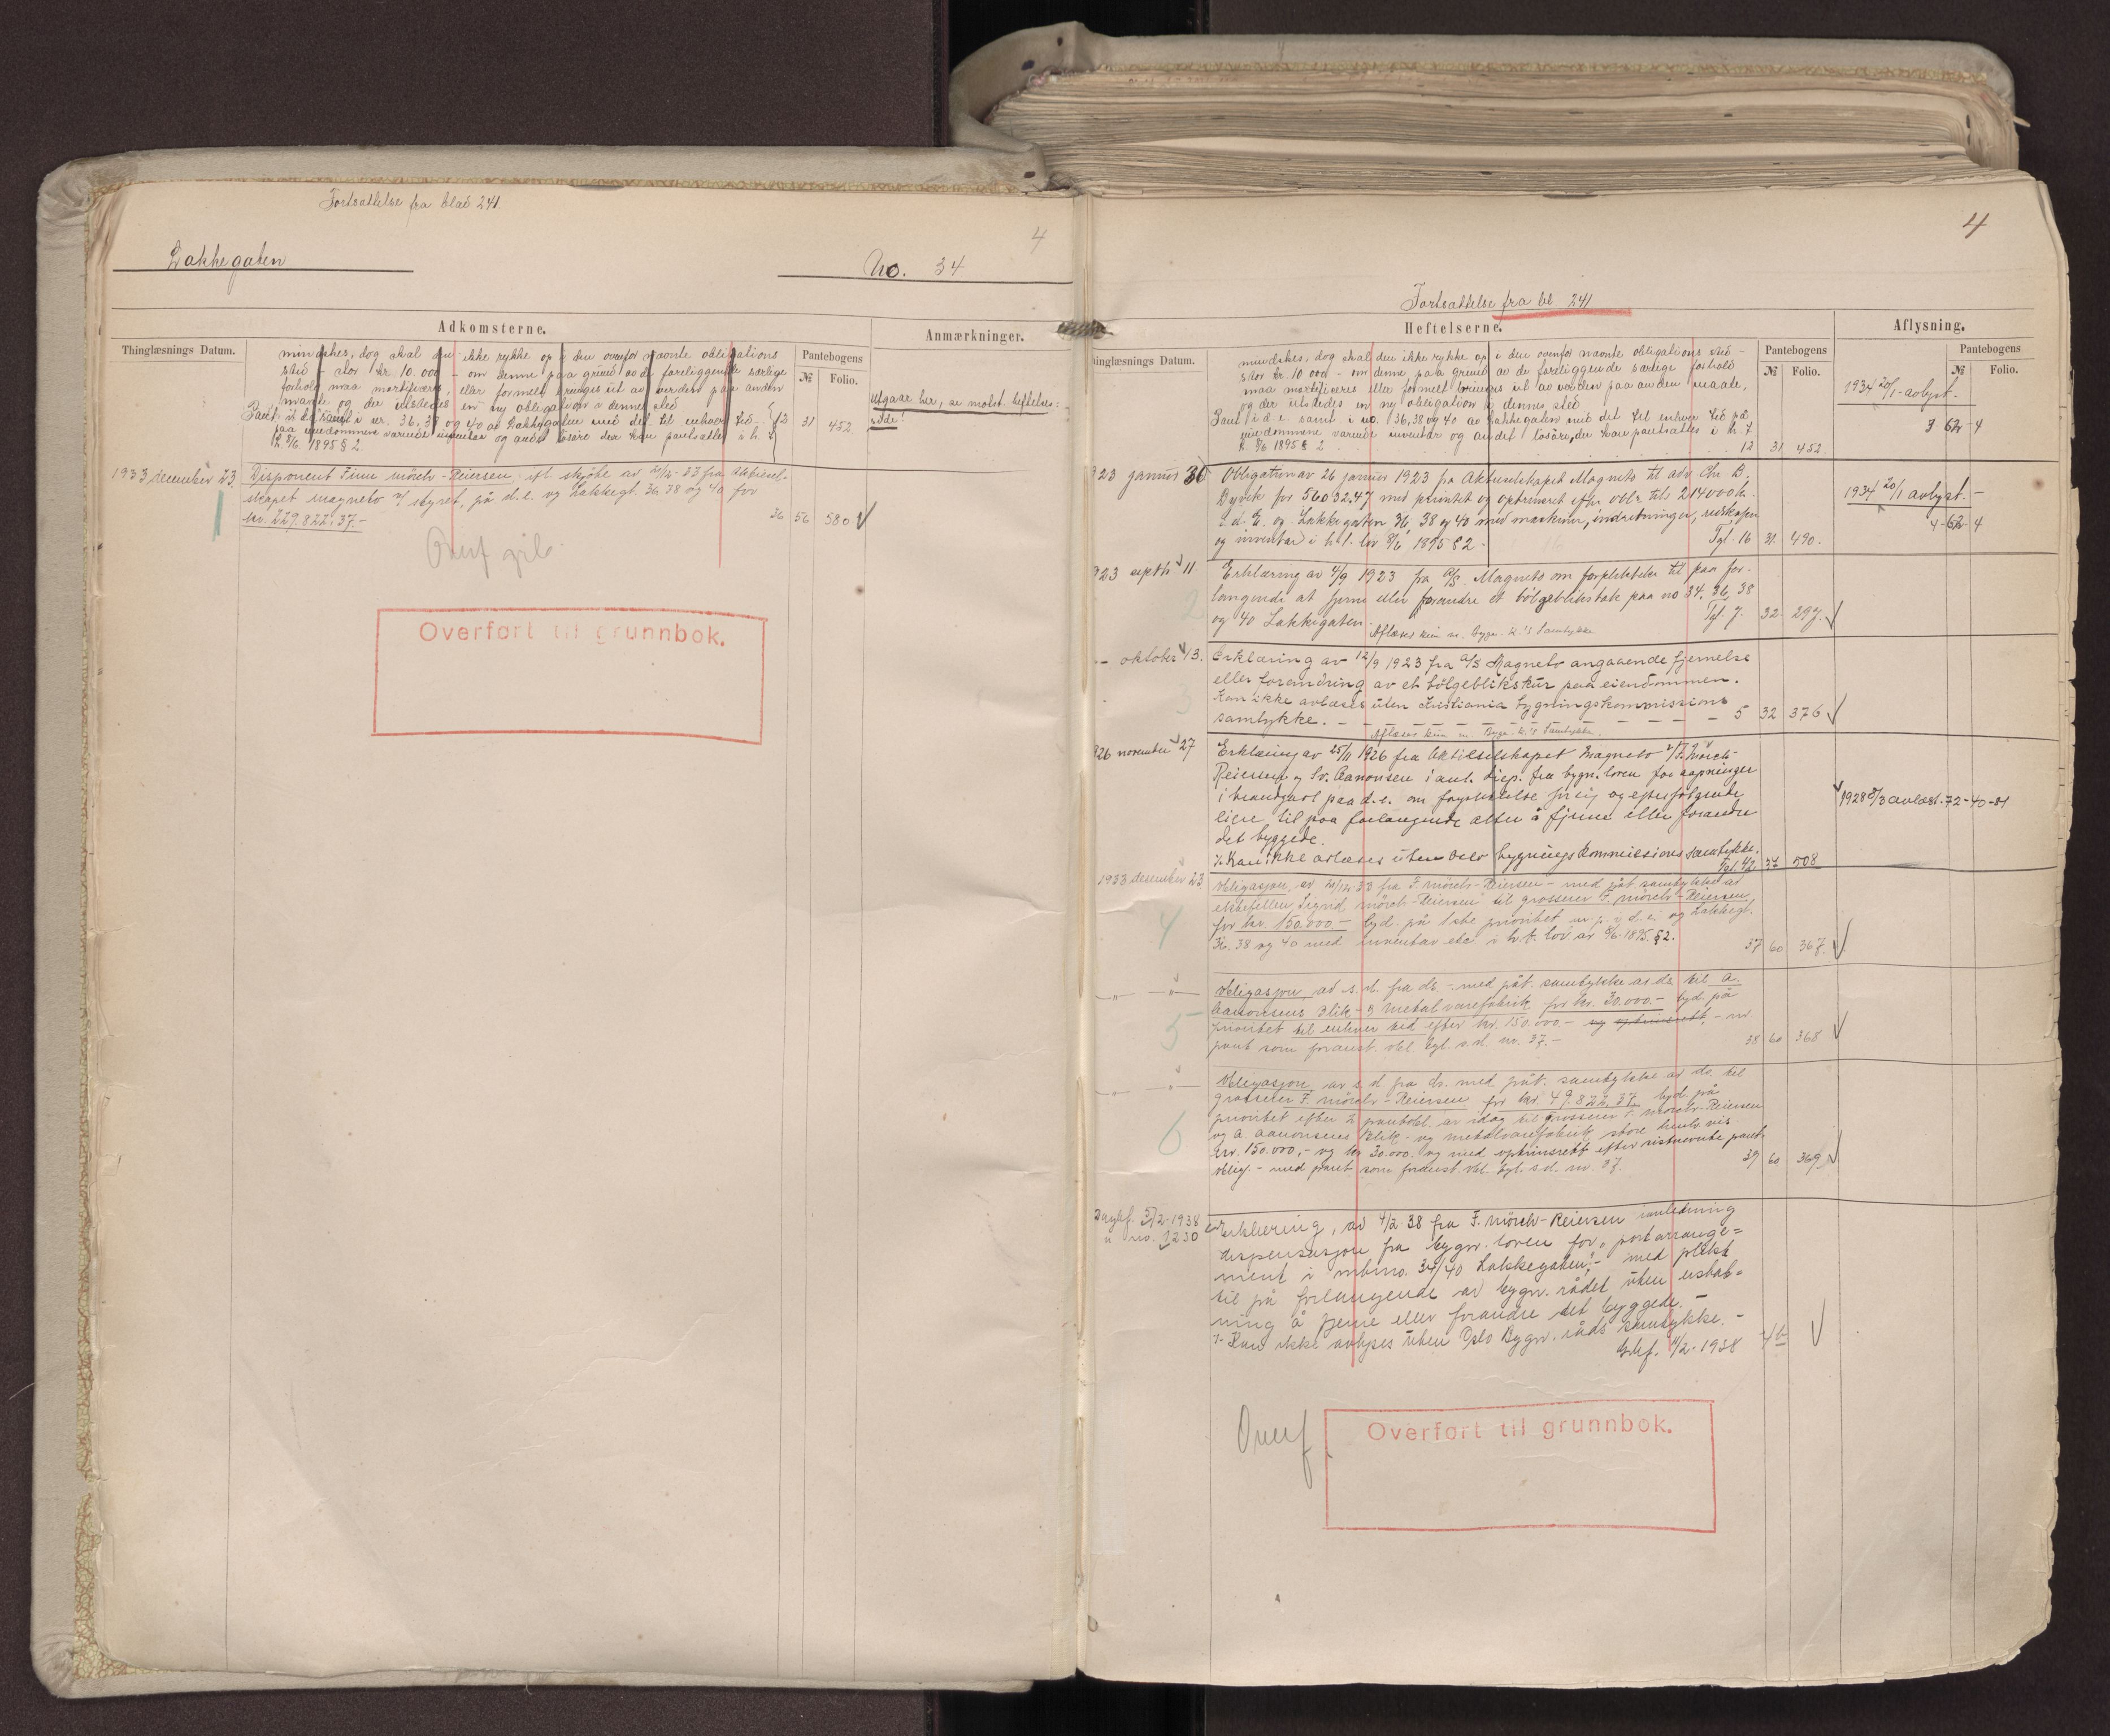 Fortsættelse fra blad 241
4
Lakkegaten
No. 34
Adkomsterne.
Anmærkninger.
Thinglæsnings Datum.
Pantebogens
№ Folio.
mindskes, dog skal den ikke rykke op i den ovenfor nævnte obligations
sted - stor kr. 10.000 - om denne paa grund av de foreliggende særlige
forhold maa mortifiseres, eller formelt bringes ut av verden paa anden
maate og der utstedes en ny obligation i dennes sted
Pant i d. e. samt i nr. 36, 38 og 40 av Lakkegaten med det til enhver tid
paa eiendommene værende inventar og andet løsøre der kan pantsættes i h. t.
L. 8/6 1895 § 2. 12 31 452
Utgaar her, se motst. heftelses-
side!
1933 december 23. Disponent Finn Mörch-Reiersen, ift skjöte av 20/12-33 fra Aktiesel-
skapet Magneto v/ styret, på d. e. og Lakkegt. 36, 38 og 40 for
kr. 229.822,37.- 36 56 580 √
1
Overf
Overført til grunnbok.
4
Fortsættelse fra bl. 241
Heftelserne.
Aflysning.
Thinglæsnings Datum.
Pantebogens
№ Folio.
Pantebogens
№ Folio.
mindskes, dog skal den ikke rykke op i den ovenfor nævnte obligations sted -
stor kr 10.000 - om denne paa grund av de foreliggende særlige forhold
maa mortifiseres eller formelt bringes ut av verden paa anden maate,
og der utstedes en ny obligation i dennes sted
Pant i d. e. samt i no. 36, 38 og 40 av Lakkegaten med det til enhver tid på
eiendommene værende inventar og andet løsøre, der kan pantsættes i h. t.
L. 8/6 1895 § 2 12 31 452.
1934 20/1 - avlyst. -
3-62-4
23 januar 30 Obligation av 26 januar 1923 fra Aktieselskapet Magneto til adv. Chr. B.
Dyvik for 56032.47 med prioritet og optrinsret efter obl. tils 214000 kr.
i d. E. og Lakkegaten 36, 38 og 40 med maskiner, indretninger, redskaper
og inventar i h. t. lov 8/6 1895 § 2 - Tgl. 16 31. 490.
1934 20/1 avlyst. -
4-62-4
23 septbr 11. Erklæring av 4/9 1923 fra A/S. Magneto om forpliktelse til paa for-
langende at fjerne eller forandre et bölgeblikstak paa no 34, 36, 38
og 40 Lakkegaten. Tgl. 7. 32 297. √
Aflæses kun m. Bygn. k.'s Samtykke
2
-- oktober 13. Erklæring av 12/9 1923 fra A/S Magneto angaaende fjernelse
eller forandring av et bölgeblikskur paa eiendommen.
Kan ikke avlæses uten Kristiania bygningskommissions
samtykke. - 5 32 376 √
Aflæses kun m. Bygn. k.'s Samtykke.
3
26 november 27 Erklæring av 25/11 1926 fra Aktieselskapet Magneto v/ F. Mörch-
Reiersen og Sv. Aanonsen i anl. disp. fra bygn. loven for aapninger
i brandgavl paa d. e. om forpliktelse for sig og efterfølgende
eiere til paa forlangende atter å fjerne eller forandre
det byggede.
Kan ikke avlæses uten Oslo bygningskommissions samtykke.
Tgl. 42. 37 508
√ 1928 8/3 avlæst. 72-40-81
1933 desember 23 Obligasjon, av 20/12-33 fra F. Mörch-Reiersen - med påt. samtykke av
ektefellen Sigrid Mörch-Reiersen til grosserer F. Mörch-Reiersen
for kr. 150.000 - lyd. på 1ste prioritet m. p. i d. e. og Lakkegt.
36, 38 og 40 med inventar etc. i h. t. lov av 8/6-1895 § 2. 37 60 367. √
4
-"- -"- Obligasjon, av s. d. fra ds. - med påt. samtykke av ds. til A.
Aanonsens Blik- & Metalvarefabrik for kr. 30.000.- lyd. på
prioritet til enhver tid efter kr. 150.000 - og optrinsrett, - m.
pant som foranst. obl. tgl. s. d. nr. 37. - 38 60 368 √
5
-"- -"- Obligasjon, av s. d. fra ds. med påt. samtykke av ds. til
grosserer F. Mörch-Reiersen for kr. 49.822,37, lyd. på
prioritet efter 2 pantobl. av idag til grosserer F. Mörch-Reiersen
og A. Aanonsens Blik- og metalvarefabrik store henh.vis
kr. 150.000,- og kr 30.000. og med optrinsrett efter sistnevnte pant-
oblig - med pant som foranst. obl. tgl. s. d. nr. 37. 39 60 369 √
6
Dagbf. 5/2-1938
" no. 1230
Erklæring, av 4/2-38 fra F. Mörch-Reiersen i anledning
dispensasjon fra bygn. loven for „portarrange-
ment i mtrno. 34/40 Lakkegaten" - med plikt
til på forlangende av bygn. rådet uten erstat-
ning å fjerne eller forandre det byggede. -
Kan ikke avlyses uten Oslo Bygn. råds samtykke. -
Gbf. 11/2-1938 √
Overf.
Overført til grunnbok.